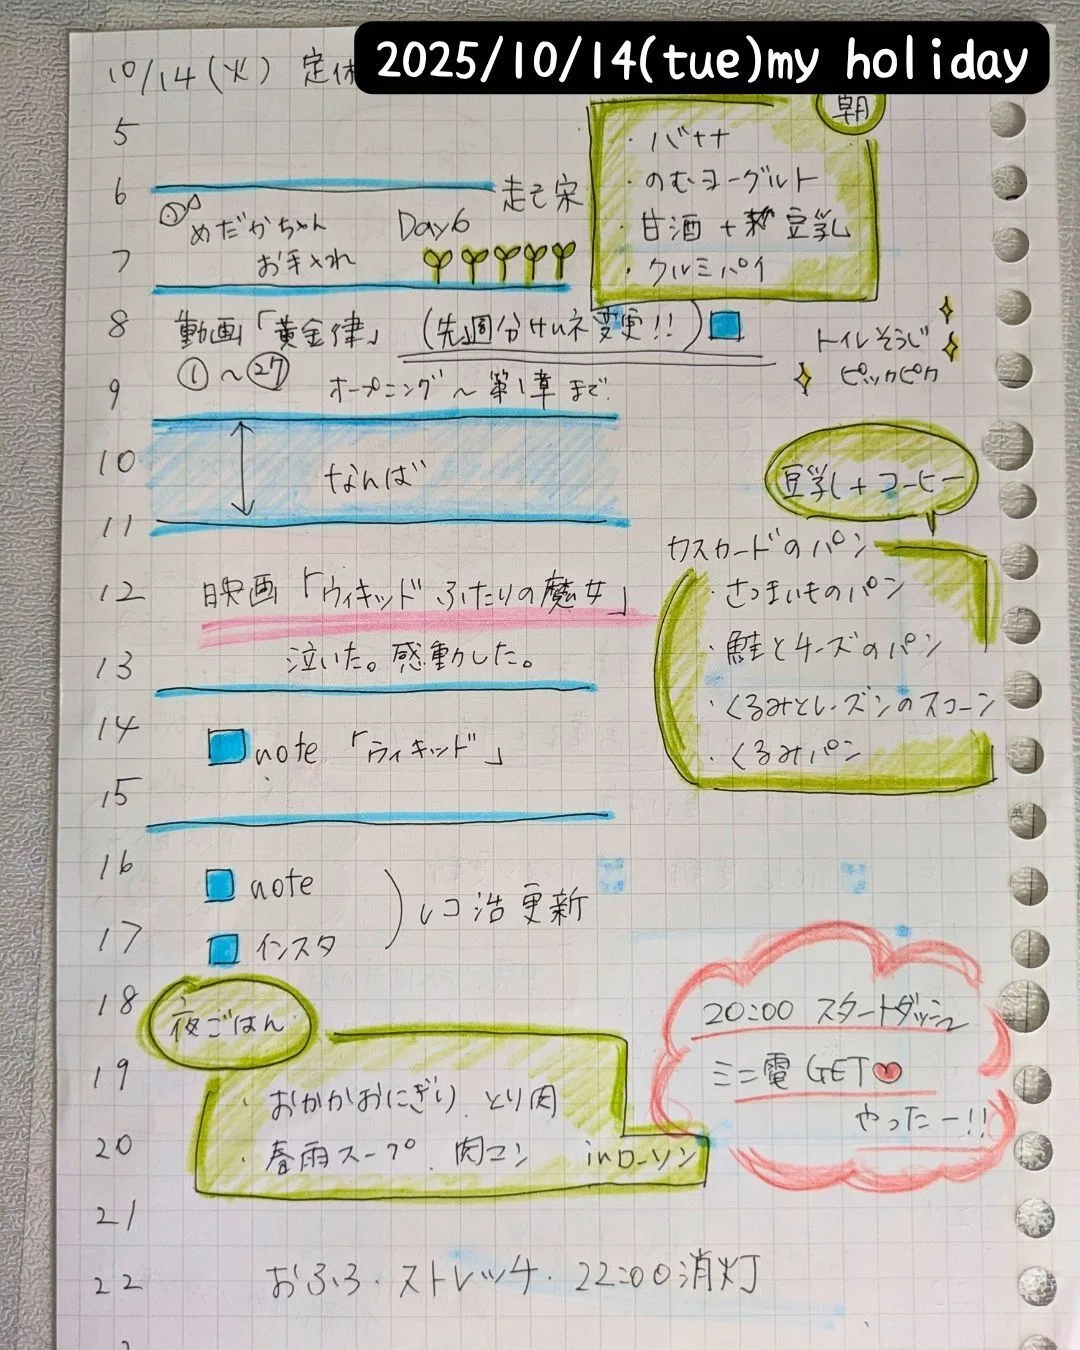 2025/10/14(tue)my holiday
10/14(火) 定休
朝
・バナナ
・のむヨーグルト
・甘酒+豆乳
・クルミパイ
5
6
走己宋
めだかちゃん
お手入れ
Day6
7
8
動画「黄金律」(先週分けいネ変更!!)
①~㉗
オープニング~第1章まで
トイレそうじ
ピッカピカ
9
10
なんば
11
豆乳+コーヒー
カスカードのパン
・さつまいものパン
・鮭とチーズのパン
・くるみとレーズンのスコーン
・くるみパン
12
映画「ウィキッド ふたりの魔女」
13
泣いた。感動した。
14
note「ウィキッド」
15
16
note
17
インスタ
レコ浩更新
18
夜ごはん
19
・おかかおにぎり. とり肉
20
・春雨スープ. 肉マン inローソン
20:00 スタートダッシュ
ミニ電GET
やったー!!
21
22
おふろ・ストレッチ・22:00消灯